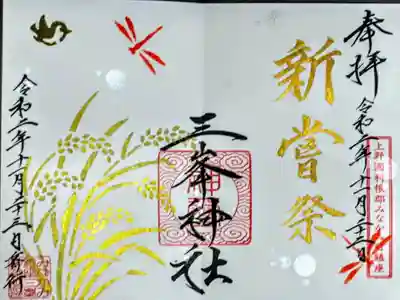 奉拝
令和二年十一月二十三日
上野國利根郡みなかみ鎮座
新嘗祭
三峯神社
令和二年十一月二十三日斎行